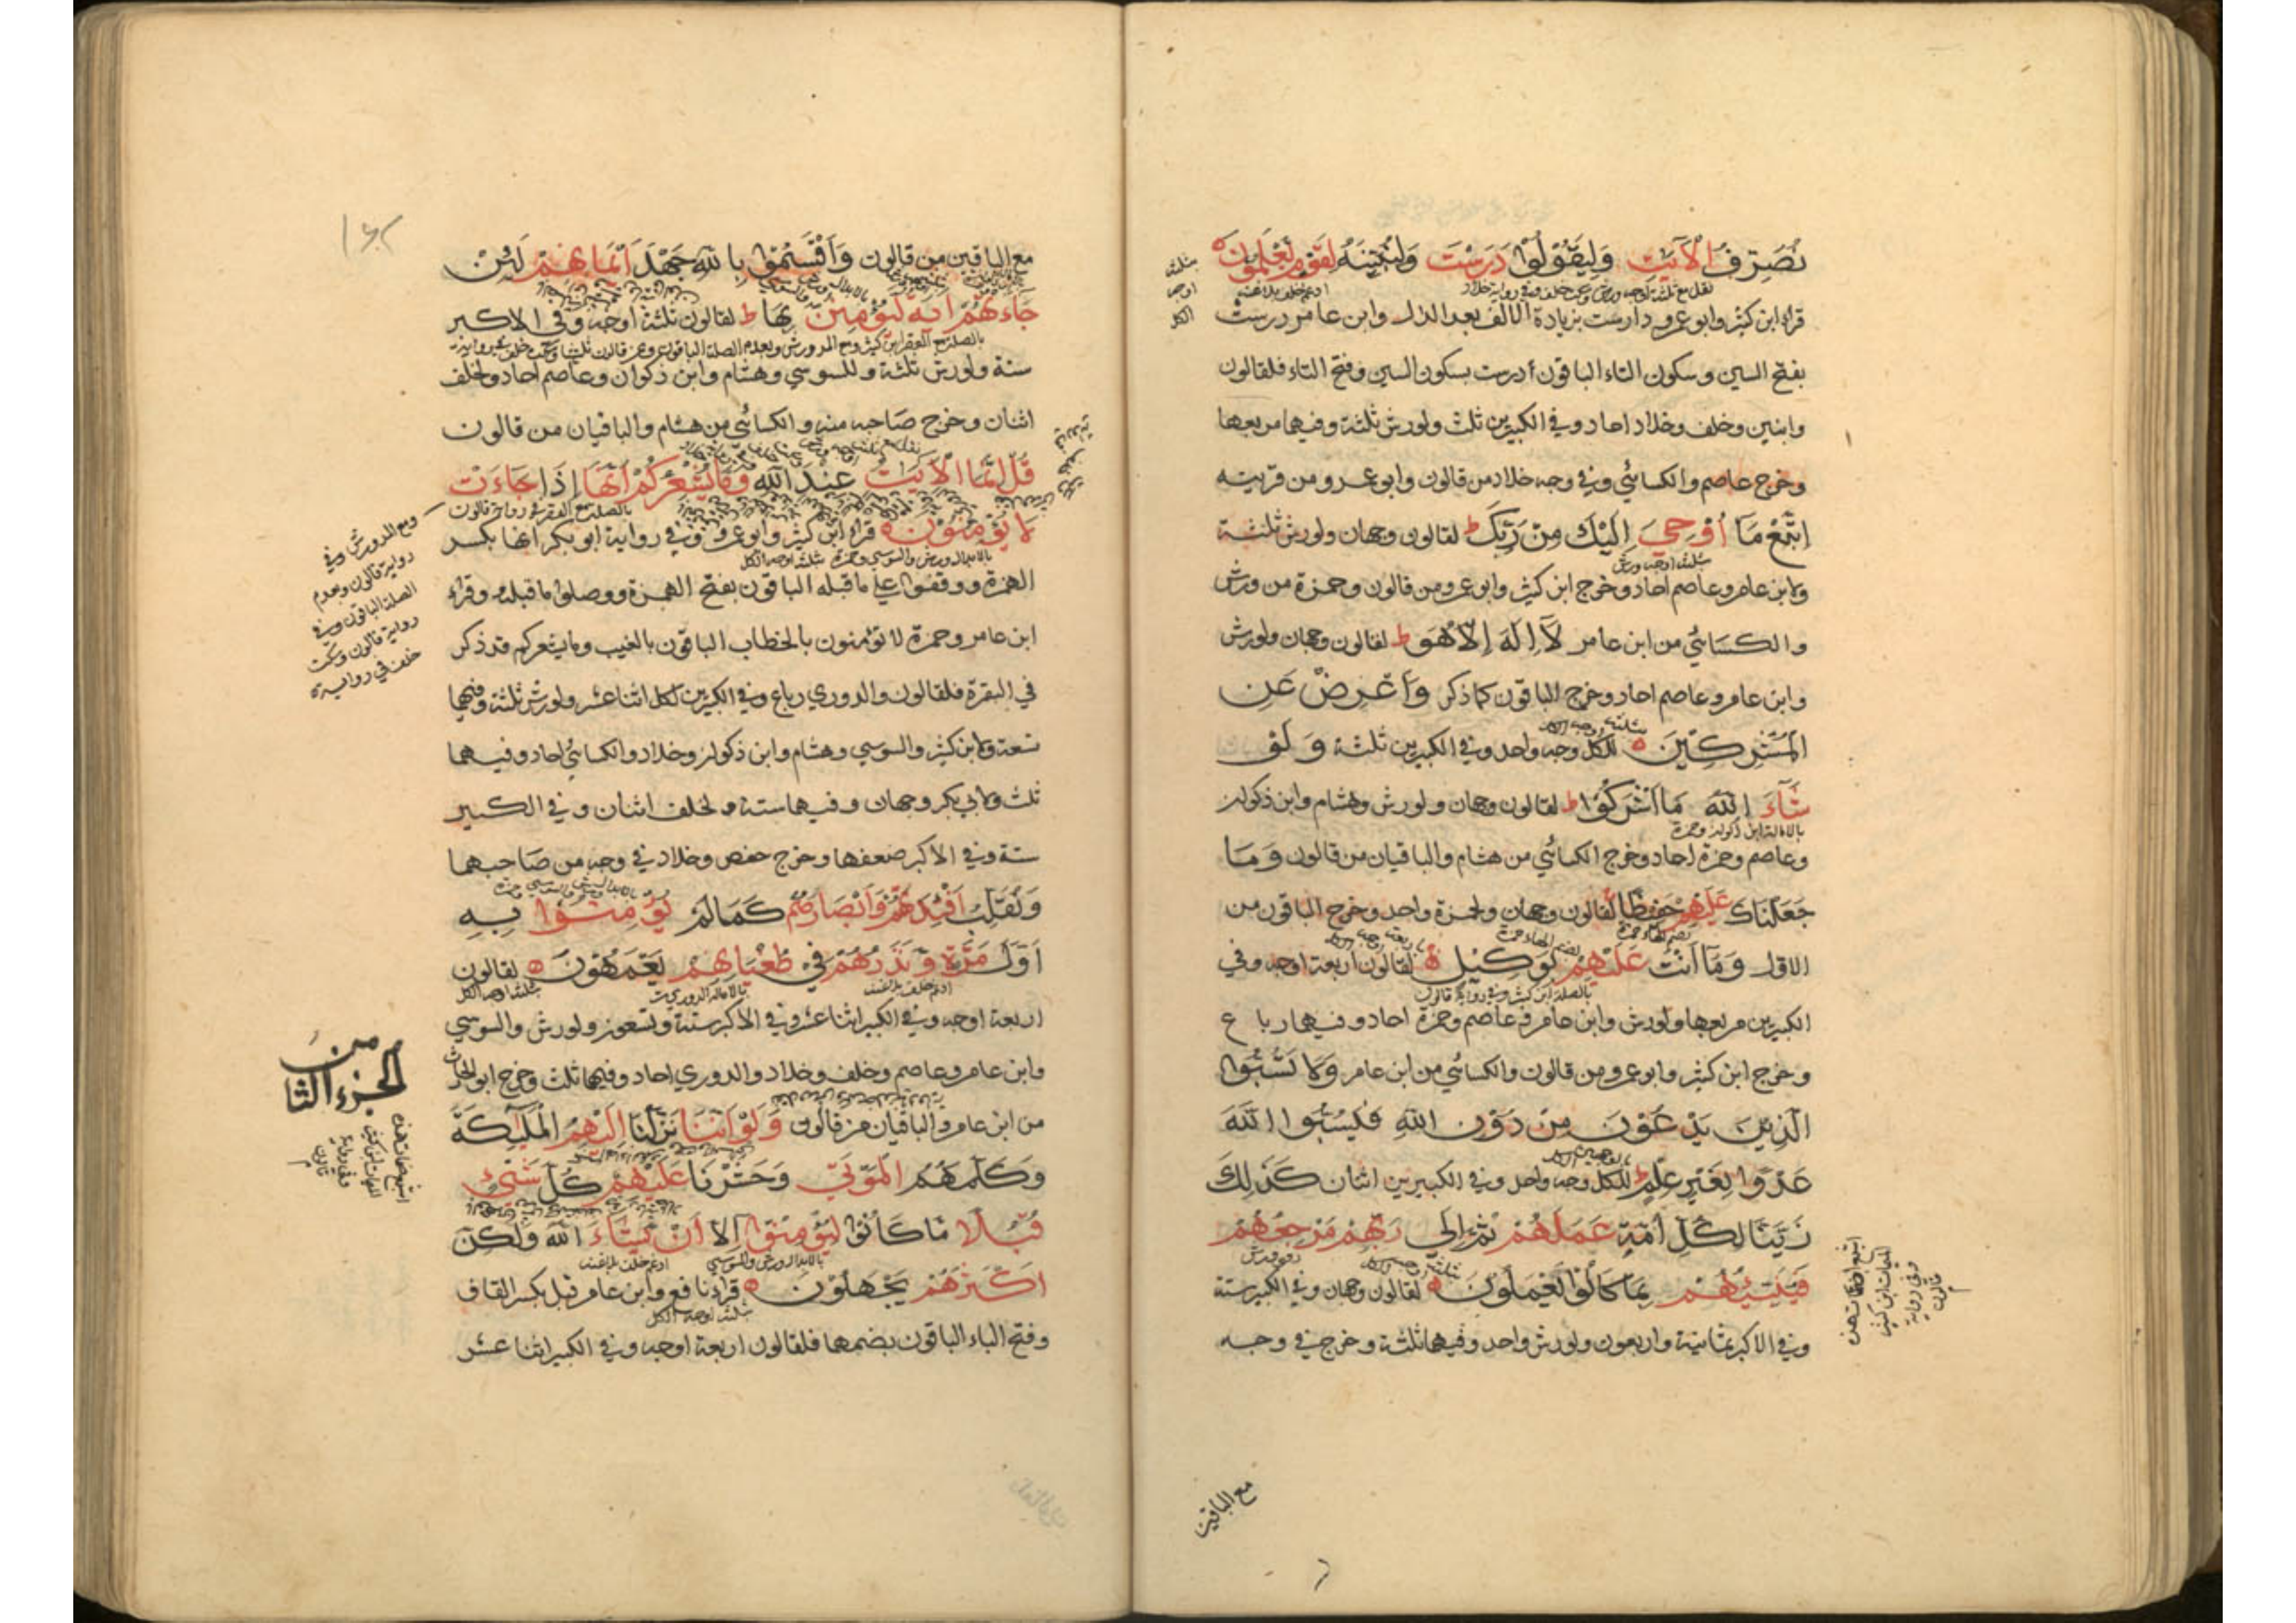 نُصَرِّفُ الْآيٰتِ وَلِيَقُوْلُوْا دَرَسْتَ وَلِنُبَيِّنَهٗ لِقَوْمٍ يَّعْلَمُوْنَ
قراء ابن كثير وابو عمرو دارست بزيادة الالف بعد الدال وابن عامر درست
بفتح السين وسكون التاء الباقون أدرست بسكون السين وفتح التاء فلقالون
وابنين وخلف وخلاد احاد وفي الكبيرين ثلث ولورش ثلثة وفيهما مربعها
وخرج عاصم والكسائي وفي وجه خلاد من قالون وابو عمرو من قريبه
اِتَّبِعْ مَا أُوْحِيَ اِلَيْكَ مِنْ رَّبِّكَ ط لقالون وجهان ولورش ثلثة
ولابن عامر وعاصم احاد وخرج ابن كثير وابو عمرو من قالون وحمزة من ورش
والكسائي من ابن عامر لَآ اِلٰهَ اِلَّا هُوَ ط لقالون وجهان ولورش
وابن عامر وعاصم احاد وخرج الباقون كما ذكر وَأَعْرِضْ عَنِ
الْمُشْرِكِيْنَ للكل وجه واحد وفي الكبيرين ثلثة وَلَوْ
شَآءَ اللّٰهُ مَا اَشْرَكُوْا ط لقالون وجهان ولورش وهشام وابن ذكوان
بالامالة ابن ذكوان وحمزة
وعاصم وحمزة احاد وخرج الكسائي من هشام والباقيان من قالون وَمَا
جَعَلْنَاكَ عَلَيْهِمْ حَفِيْظًا لقالون وجهان ولحمزة واحد وخرج الباقون من
الاول وَمَا اَنْتَ عَلَيْهِمْ بِوَكِيْلٍ لقالون اربعة اوجه وفي
بالصلة ابن كثير وفي رواية قالون
الكبيرين مربعها ولورش وابن عامر وعاصم وحمزة احاد وفيهما رباع
وخرج ابن كثير وابو عمرو من قالون والكسائي من ابن عامر وَلَا تَسُبُّوا
الَّذِيْنَ يَدْعُوْنَ مِنْ دُوْنِ اللّٰهِ فَيَسُبُّوا اللّٰهَ
عَدْوًا بِغَيْرِ عِلْمٍ ط للكل وجه واحد وفي الكبيرين اثنان كَذٰلِكَ
زَيَّنَّا لِكُلِّ اُمَّةٍ عَمَلَهُمْ ثُمَّ اِلٰى رَبِّهِمْ مَرْجِعُهُمْ
فَيُنَبِّئُهُمْ بِمَا كَانُوْا يَعْمَلُوْنَ لقالون وجهان وفي الكبير ستة
وفي الاكبر ثمانية واربعون ولورش واحد وفيهما ثلثة وخرج في وجه
مع الباقين
مع الباقين من قالون وَأَقْسَمُوْا بِاللّٰهِ جَهْدَ اَيْمَانِهِمْ لَئِنْ
جَاءَتْهُمْ اٰيَةٌ لَّيُؤْمِنُنَّ بِهَا ط لقالون ثلثة اوجه وفي الاكبر
ستة ولورش ثلثة وللسوسي وهشام وابن ذكوان وعاصم احاد ولخلف
اثنان وخرج صاحبه منه والكسائي من هشام والباقيان من قالون
قُلْ اِنَّمَا الْاٰيٰتُ عِنْدَ اللّٰهِ وَمَا يُشْعِرُكُمْ اَنَّهَا اِذَا جَاءَتْ
لَا يُؤْمِنُوْنَ قراء ابن كثير وابو عمرو وفي رواية ابو بكر انها بكسر
بالابدال ورش والسوسي وحمزة ثلثة اوجه الكل
الهمزة ووقفوا على ما قبله الباقون بفتح الهمزة ووصلوا ما قبله وقراء
ابن عامر وحمزة لا تؤمنون بالخطاب الباقون بالغيب وما يشعركم قد ذكر
في البقرة فلقالون والدوري رباع وفي الكبيرين لكل اثنا عشر ولورش ثلثة وفيهما
تسعة ولابن كثير والسوسي وهشام وابن ذكوان وخلاد والكسائي احاد وفيهما
ثلث ولابي بكر وجهان وفيهما ستة ولخلف اثنان وفي الكبير
ستة وفي الاكبر ضعفها وخرج حفص وخلاد في وجه من صاحبهما
وَنُقَلِّبُ اَفْئِدَتَهُمْ وَاَبْصَارَهُمْ كَمَا لَمْ يُؤْمِنُوْا بِهٖ
اَوَّلَ مَرَّةٍ وَّنَذَرُهُمْ فِيْ طُغْيَانِهِمْ يَعْمَهُوْنَ لقالون
اربعة اوجه وفي الكبير اثنا عشر وفي الاكبر ستة وتسعون ولورش والسوسي
وابن عامر وعاصم وخلف وخلاد والدوري احاد وفيهما ثلث وخرج ابو الحارث
من ابن عامر والباقيان من قالون وَلَوْ اَنَّنَا نَزَّلْنَا اِلَيْهِمُ الْمَلٰئِكَةَ
وَكَلَّمَهُمُ الْمَوْتٰى وَحَشَرْنَا عَلَيْهِمْ كُلَّ شَيْءٍ
قُبُلًا مَّا كَانُوْا لِيُؤْمِنُوْا اِلَّا اَنْ يَّشَاءَ اللّٰهُ وَلٰكِنَّ
اَكْثَرَهُمْ يَجْهَلُوْنَ قراء نافع وابن عامر قبل بكسر القاف
وفتح الباء الباقون بضمهما فلقالون اربعة اوجه وفي الكبير اثنا عشر
ومع المد ورش وفي
رواية قالون وبعدم
الصلة الباقون وفي
رواية قالون وسكت
خلف في رواية
من
الجزء الثا